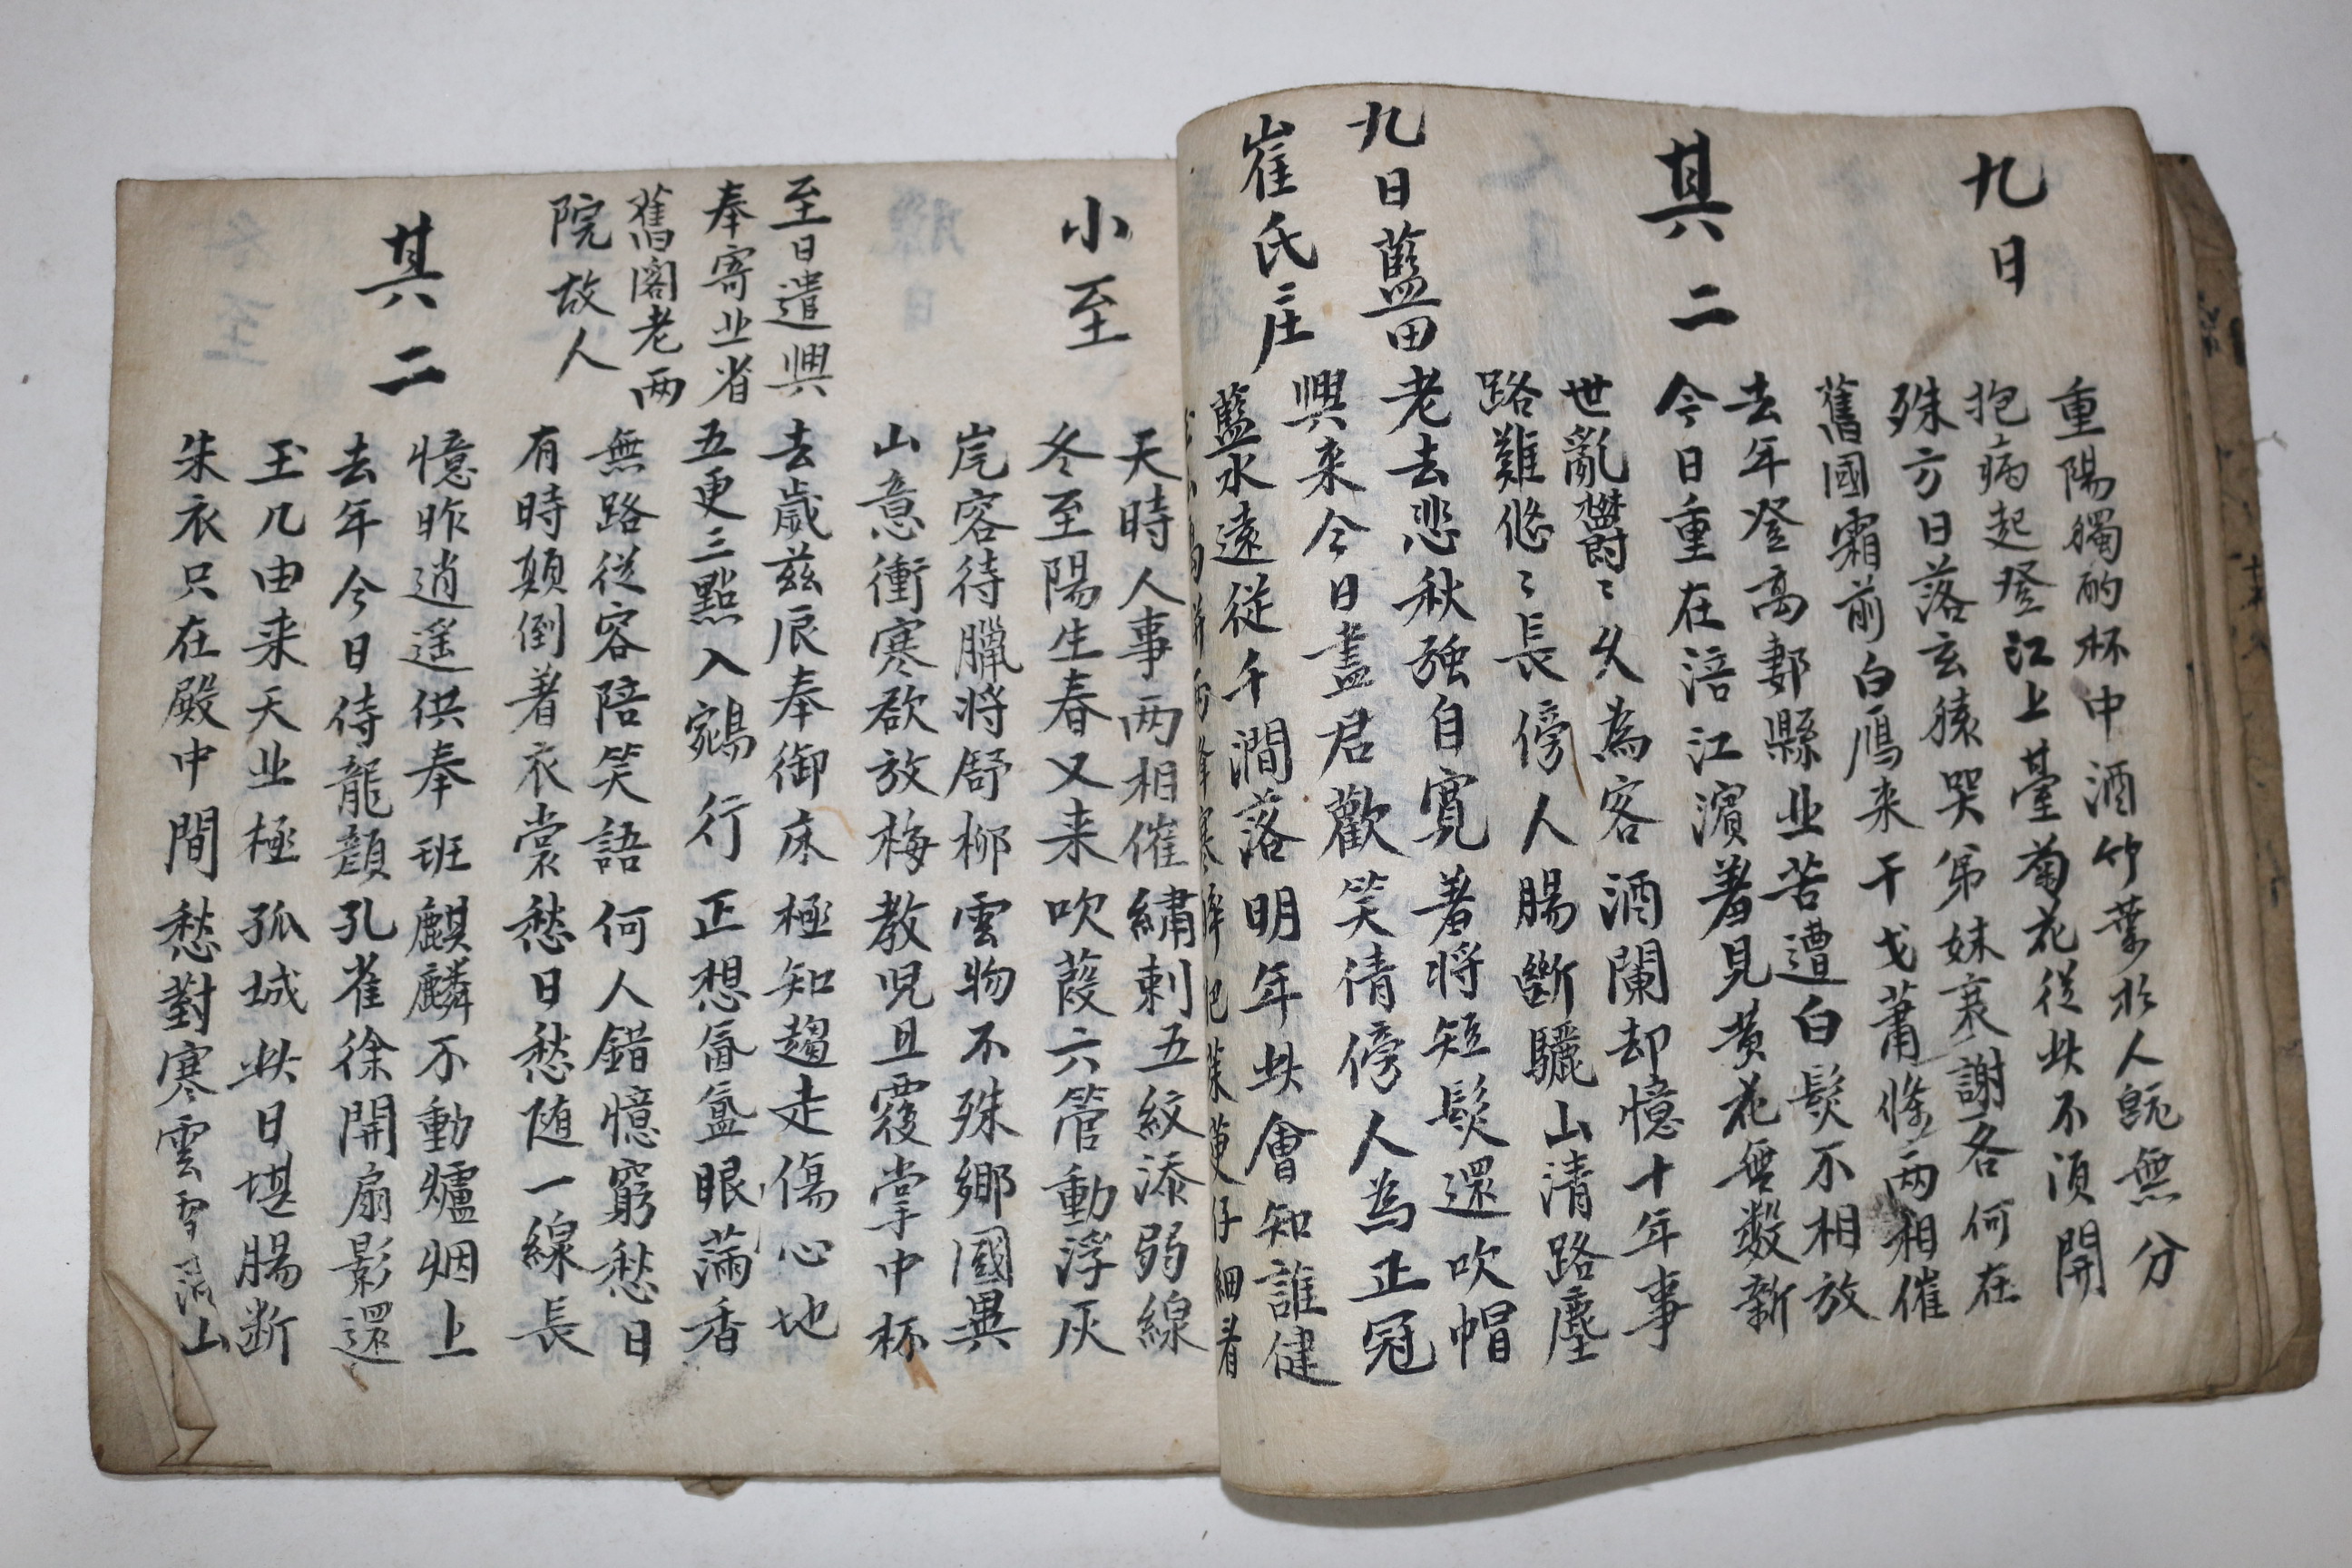 九日
重陽獨酌杯中酒竹葉於人旣無分
抱病起登江上臺菊花從此不須開
殊方日落玄猿哭弟妹衰謝各何在
舊國霜前白鴈来干戈蕭條兩相催
其二
去年登高郪縣北苦遭白髮不相放
今日重在涪江濱羞見黄花無数新
世亂鬱〻久為客酒闌却憶十年事
路難悠〻長傍人腸斷驪山清路塵
九日藍田
崔氏庄
老去悲秋强自寬羞将短髮還吹帽
興来今日盡君歡笑倩傍人為正冠
藍水遠從千澗落明年此會知誰健
仔細看
小至
天時人事兩相催繡刺五紋添弱線
冬至陽生春又来吹葭六管動浮灰
岸容待臘将舒柳雲物不殊鄉國異
山意衝寒欲放梅教児且覆掌中杯
至日遣興
奉寄北省
舊閣老兩
院故人
去歲玆辰奉御床極知趨走傷心地
五更三點入鵷行正想氤氳眼滿香
無路從容陪笑語何人錯憶窮愁日
有時顛倒著衣裳愁日愁随一線長
其二
憶昨逍遥供奉班麒麟不動爐烟上
去年今日侍龍顔孔雀徐開扇影還
玉几由来天北極孤城此日堪腸断
朱衣只在殿中間愁對寒雲雪滿山